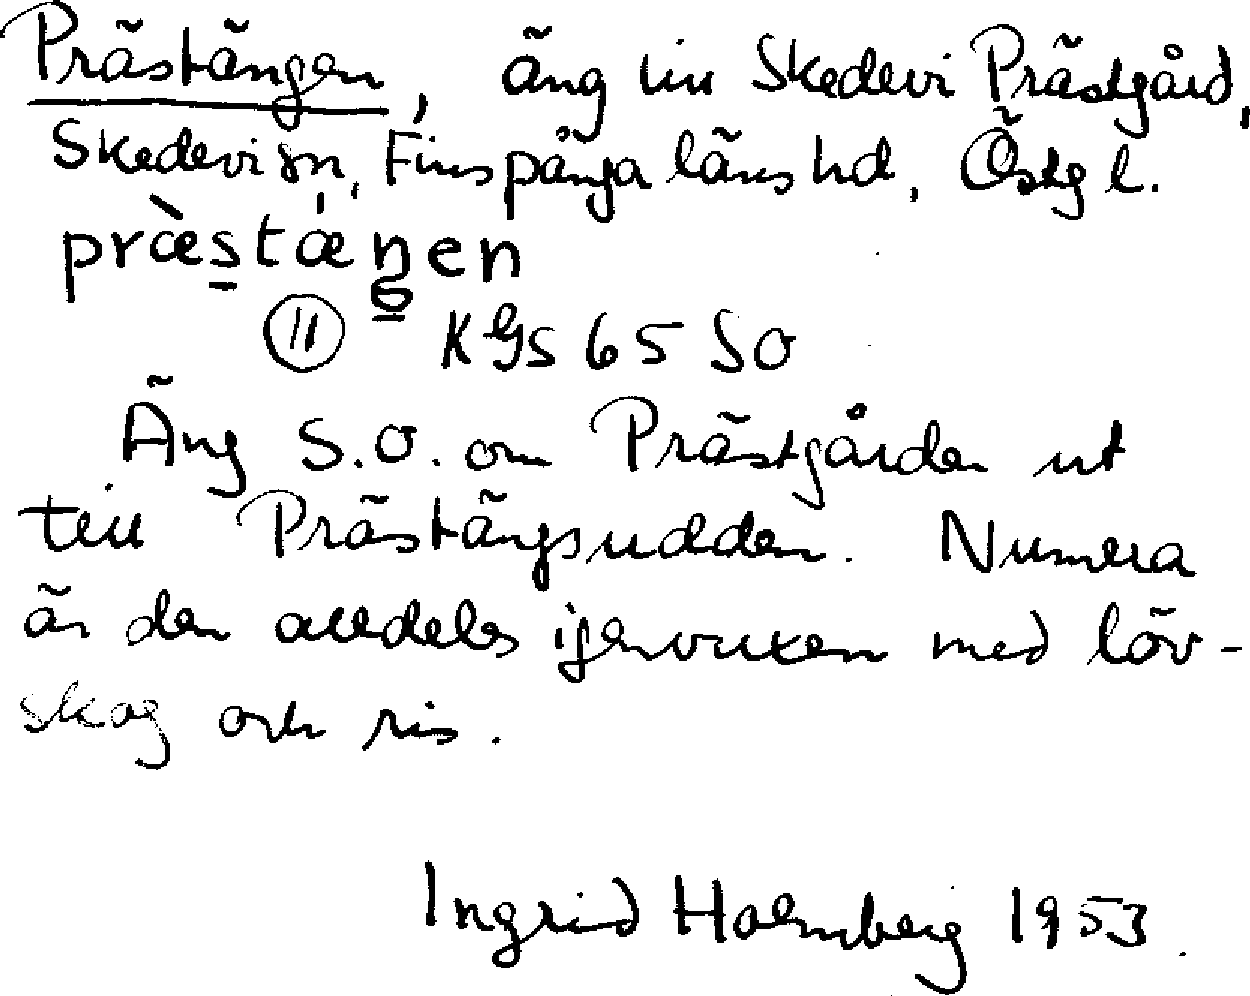 Prästängen, äng till Skedevi Prästgård,
Skedevi sn, Finspånga läns hd, Östg l.
præ̀stæ̀ŋen
11 KGS 65 SO
Äng S.O. om Prästgården ut
till Prästängsudden. Numera
är den alldeles igenvuxen med löv-
skog och ris.
Ingrid Holmberg 1953.